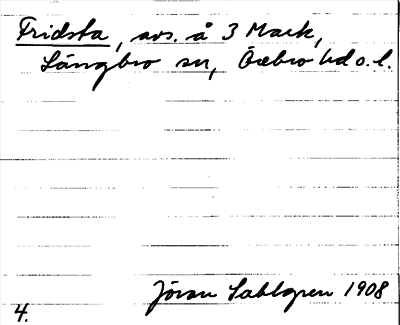 Fridsta, avs. å 3 Mark,
Längbro sn, Örebro hd o. l.
Jöran Sahlgren 1908
4.